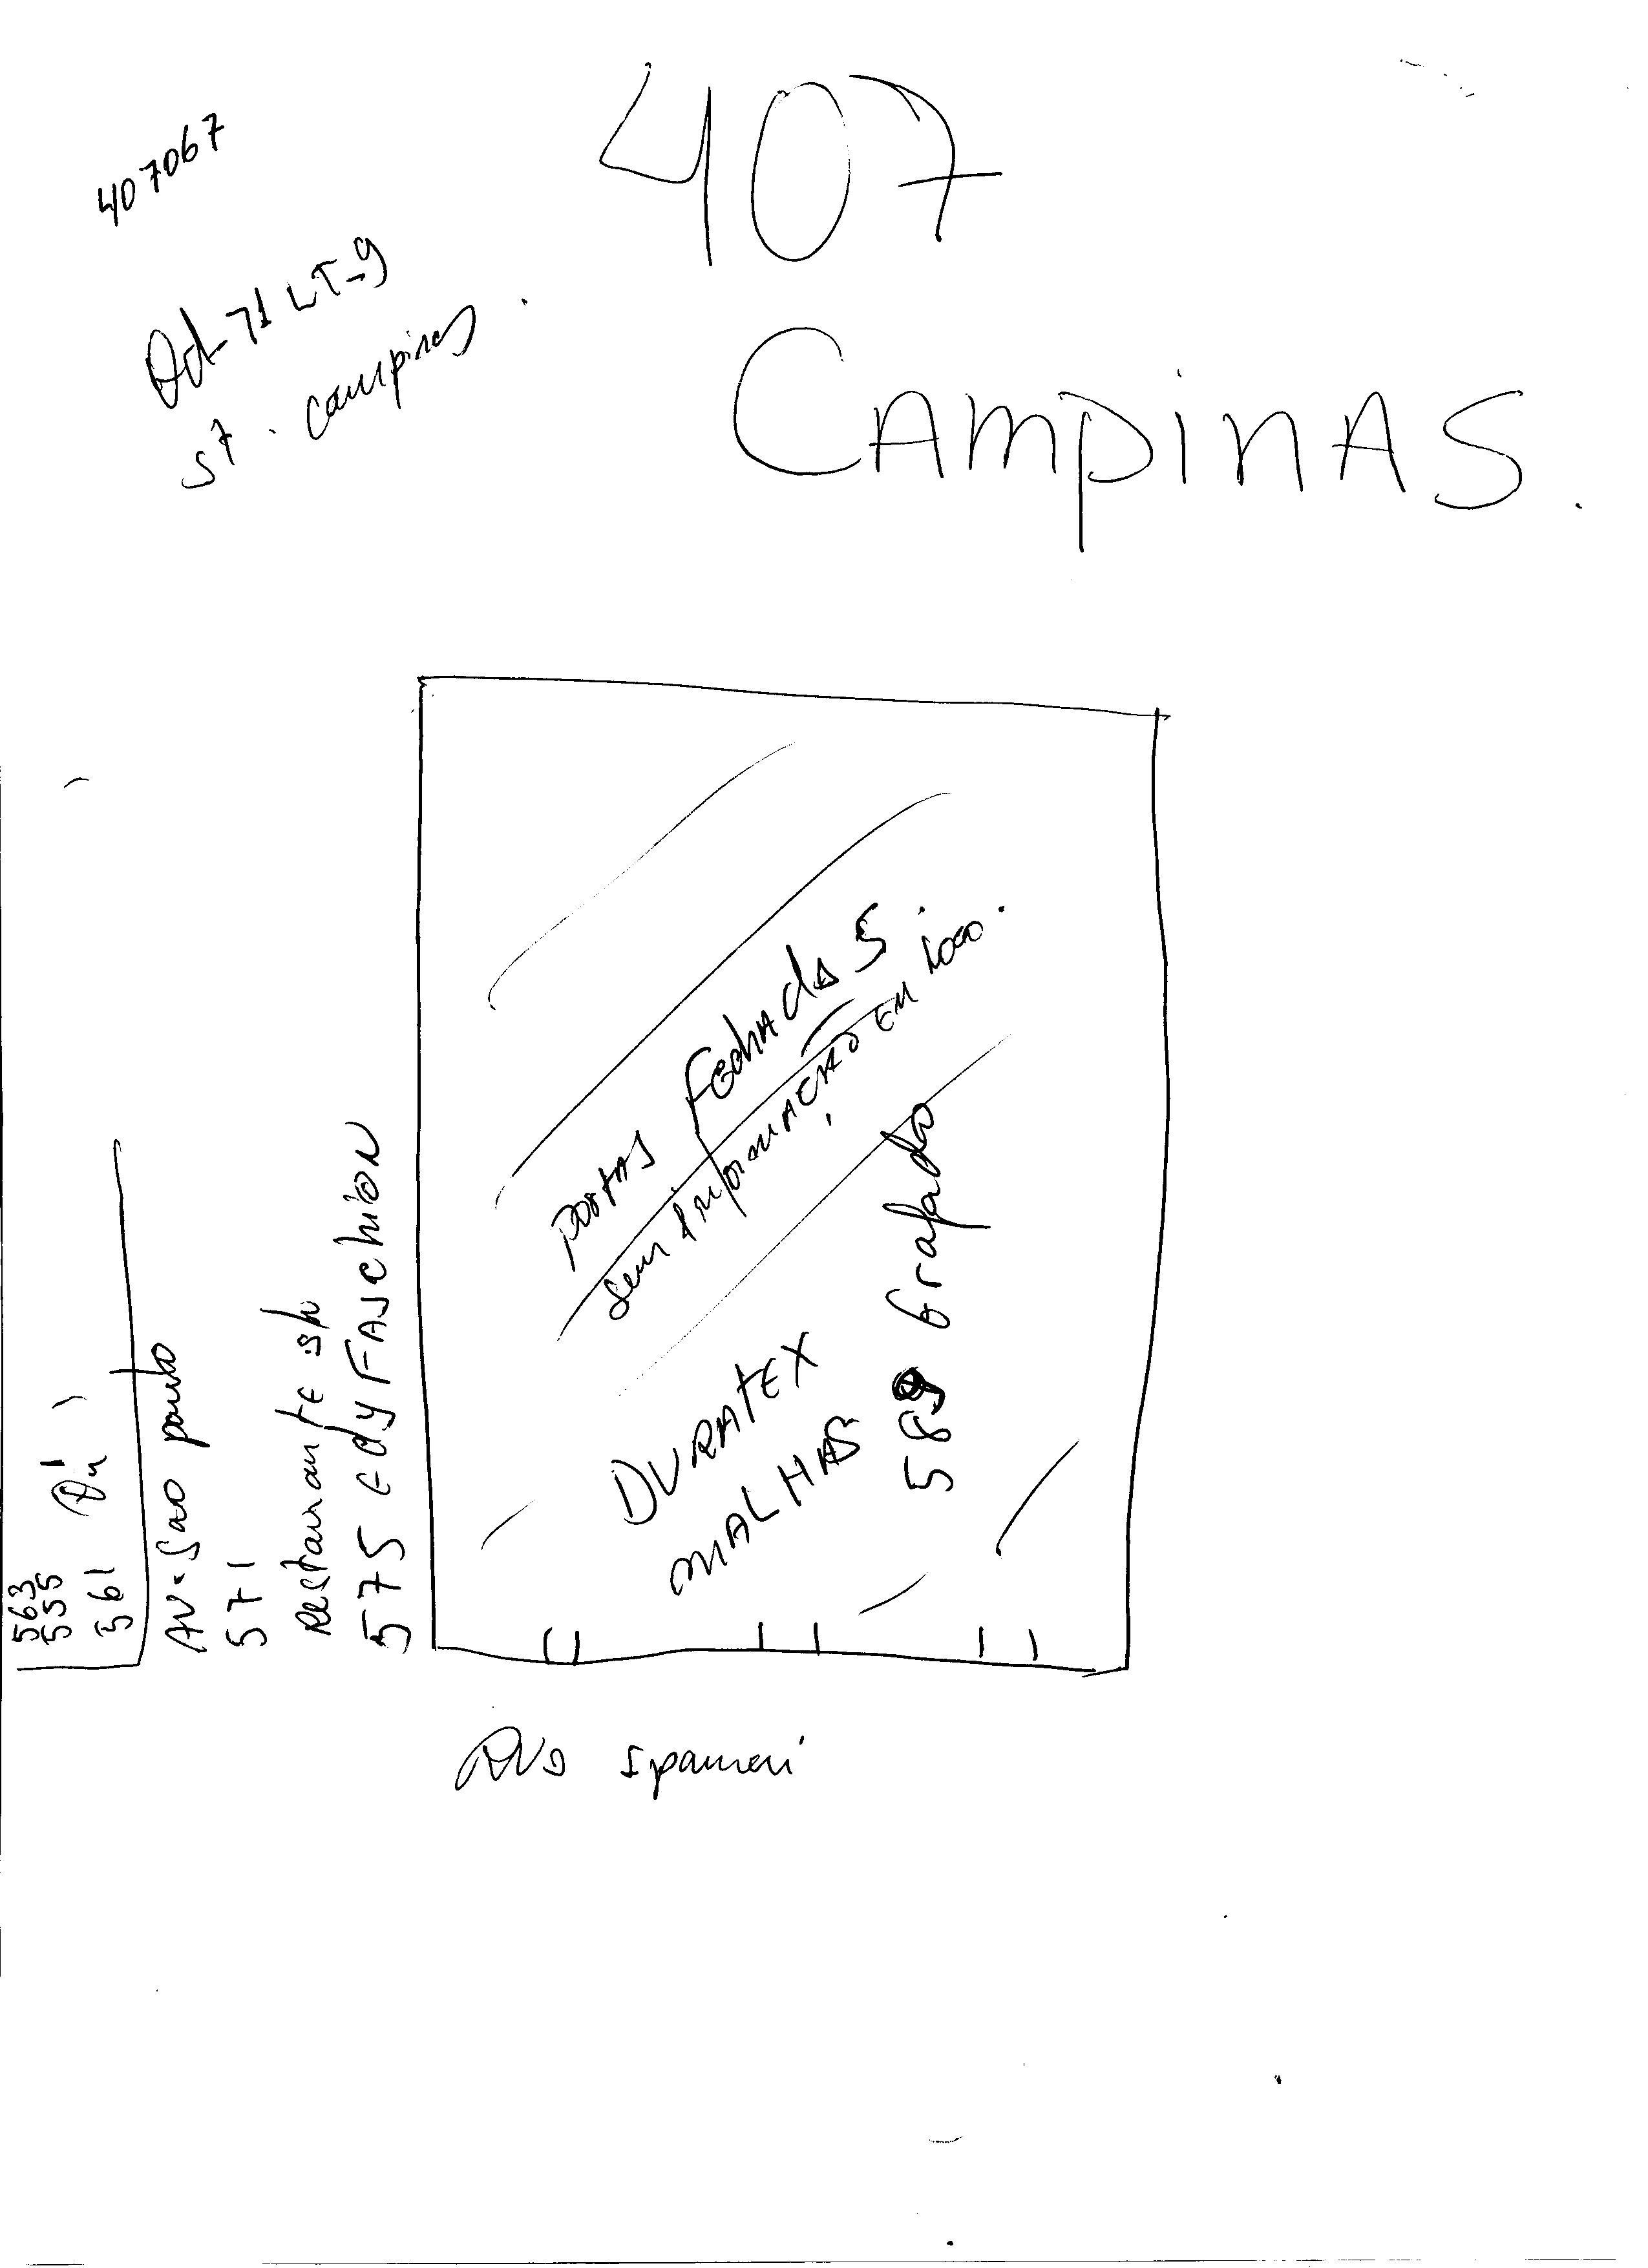 407067
407
Qd-71 LT-9
ST. Campinas
CAMPINAS.
portas fechadas
sem informação em loco.
DURATEX
MALHAS
589 Grafado
563
555
561
AV. Sao paulo
571
Restaurante
575 Edy FASchion